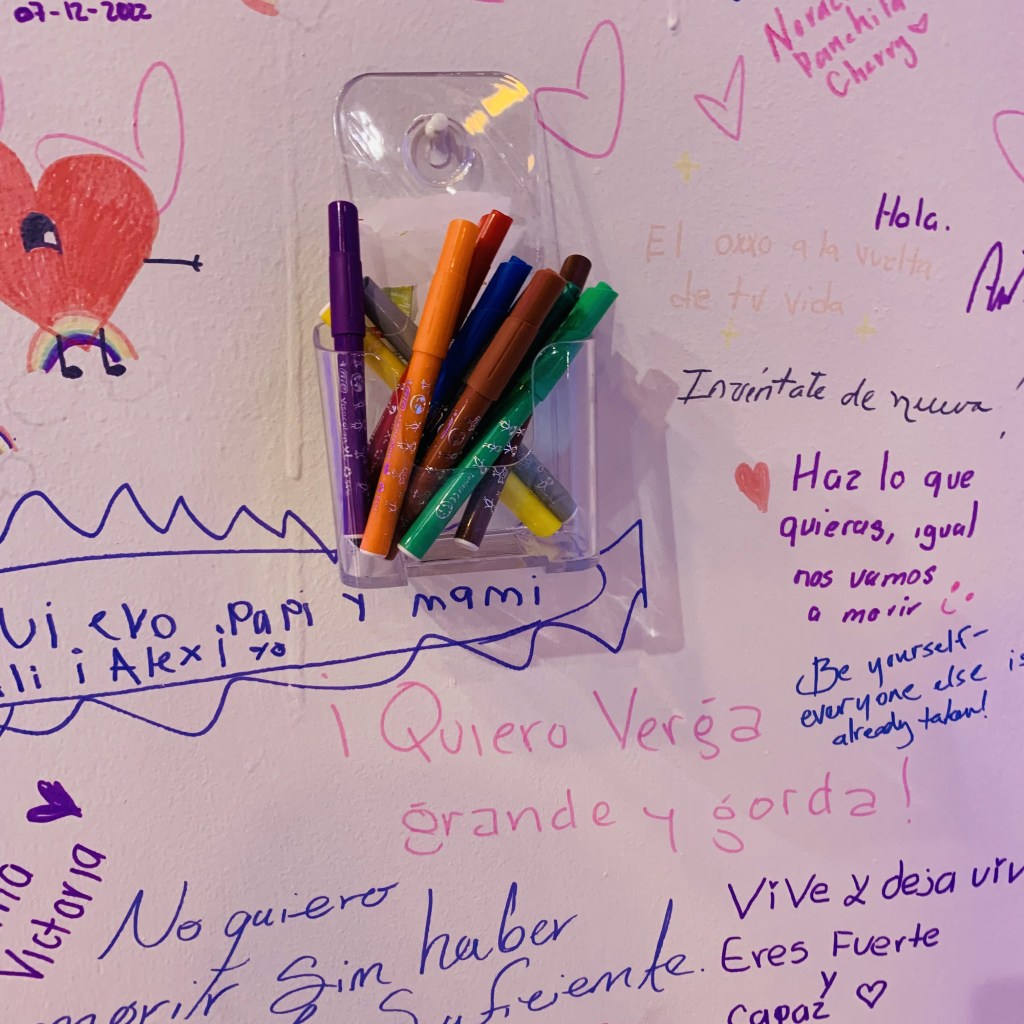 07-12-2022
Panchita
Cherry
Hola.
El oxxo a la vuelta
de tu vida
Invéntate de nueva
Haz lo que
quieras, igual
nos vamos
a morir
Be yourself-
everyone else is
already taken!
Papi y mami
Alexi yo
¡Quiero Verga
grande y gorda!
Victoria
No quiero
morir sin haber
Vive y deja
Eres Fuerte
y
capaz